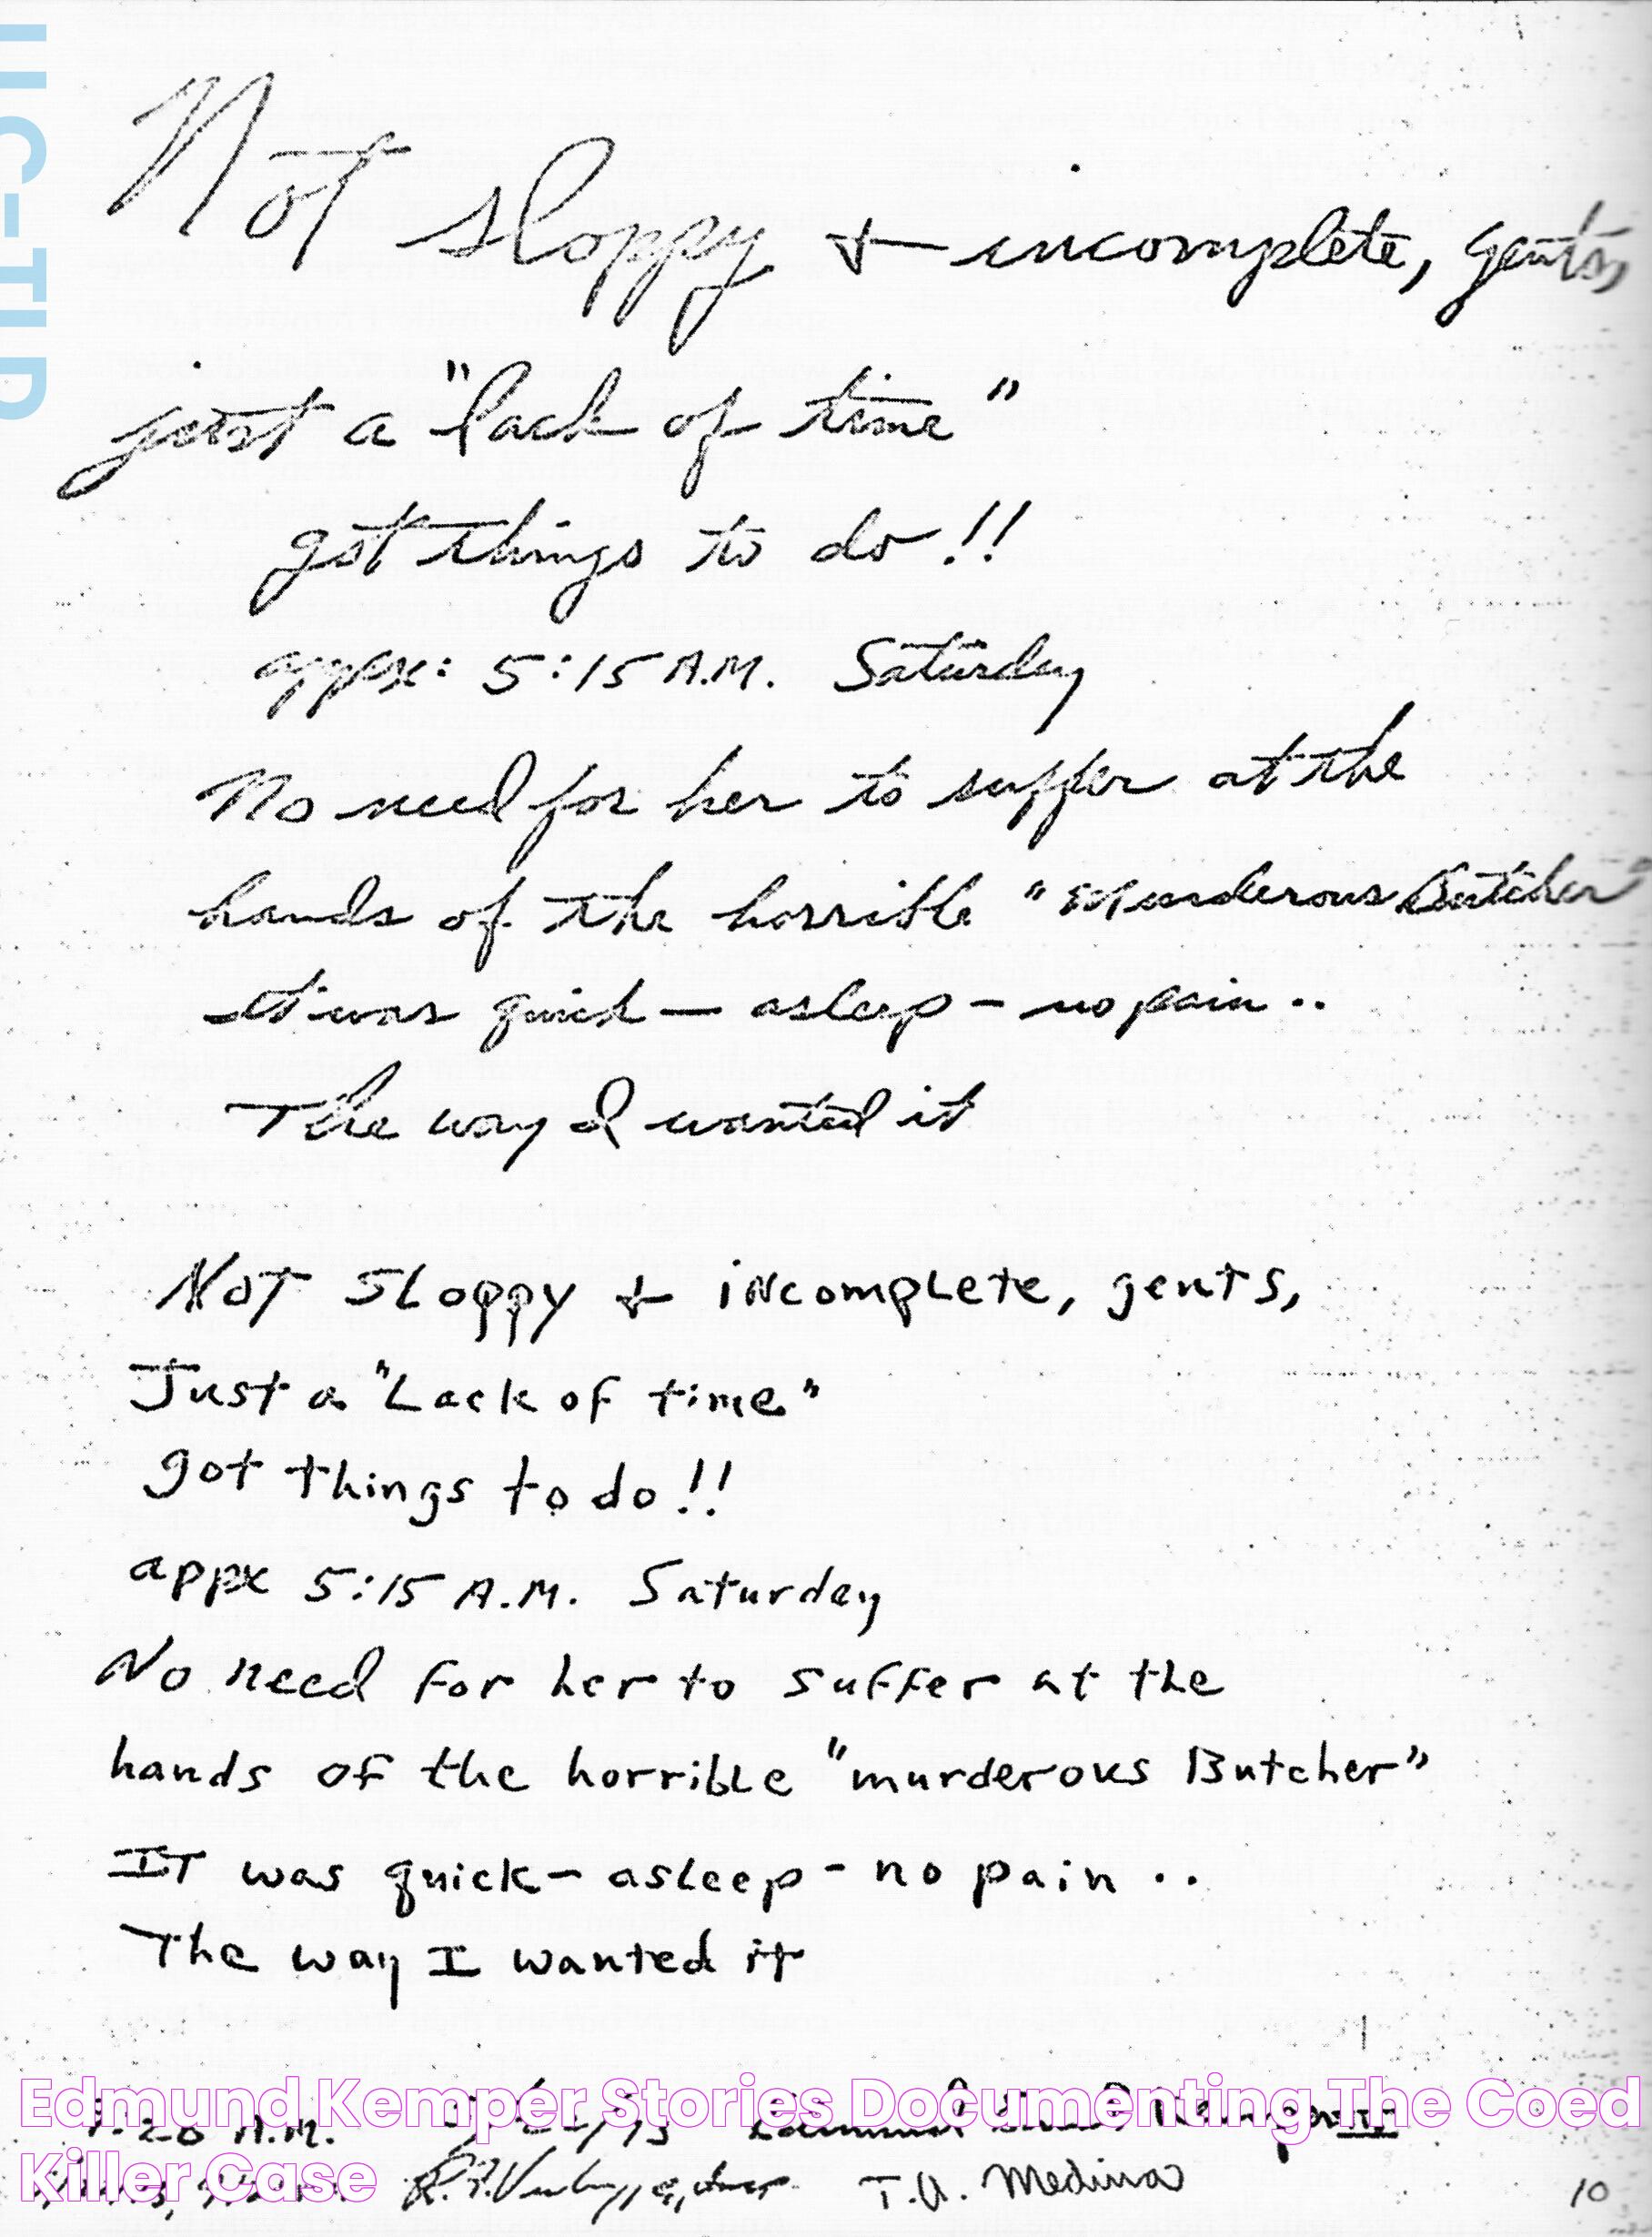 Not sloppy + incomplete, gents,
just a "lack of time"
got things to do!!
appx: 5:15 A.M. Saturday
No need for her to suffer at the
hands of the horrible "Murderous Butcher"
It was quick — asleep — no pain ..
The way I wanted it
Not Sloppy + incomplete, gents,
Just a "Lack of time"
got things to do!!
appx 5:15 A.M. Saturday
No need for her to suffer at the
hands of the horrible "murderous Butcher"
IT was quick — asleep - no pain ..
The way I wanted it
A.M. Edmund Kemper III
Edmund Kemper Stories Documenting The Coed
Killer Case
T.A. Medina
10